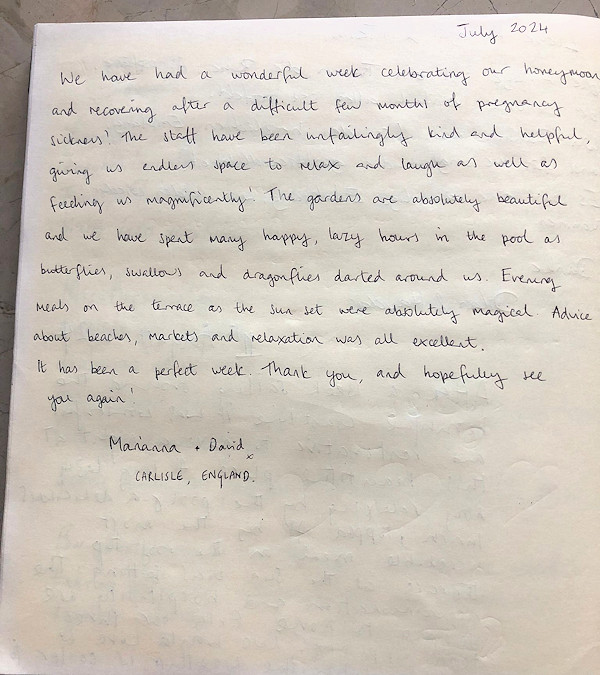 July 2024
We have had a wonderful week celebrating our honeymoon
and recovering after a difficult few months of pregnancy
sickness! The staff have been unfailingly kind and helpful,
giving us endless space to relax and laugh as well as
feeding us magnificently! The gardens are absolutely beautiful
and we have spent many happy, lazy hours in the pool as
butterflies, swallows and dragonflies darted around us. Evening
meals on the terrace as the sun set were absolutely magical. Advice
about beaches, markets and relaxation was all excellent.
It has been a perfect week. Thank you, and hopefully see
you again!
Marianna + David x
CARLISLE, ENGLAND.